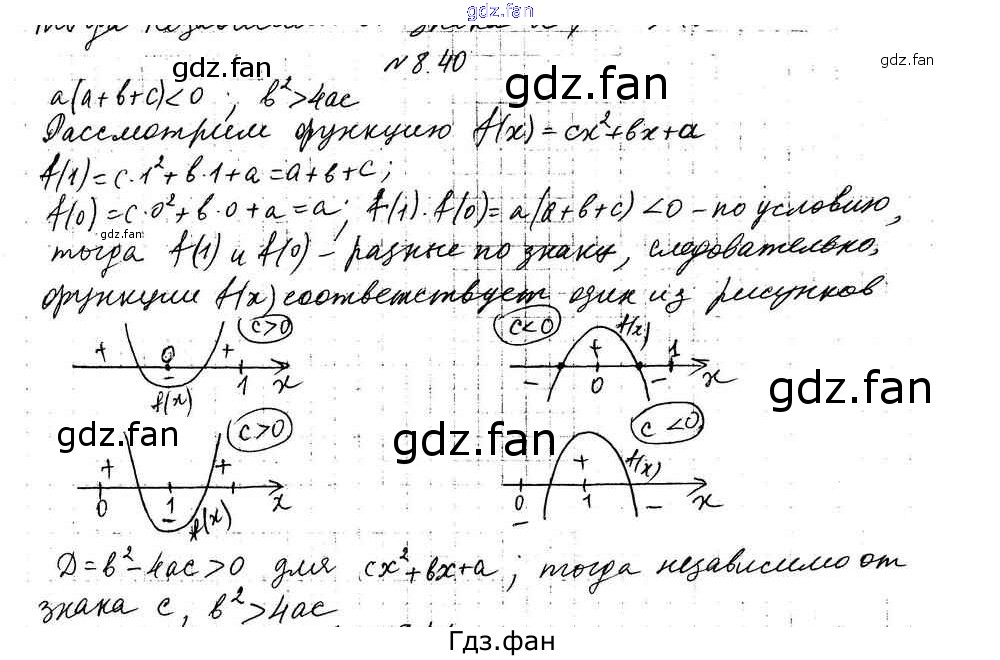 gdz.fan
№ 8.40
gdz.fan gdz.fan gdz.fan
a(a+b+c)<0 ; b²>4ac
Рассмотрим функцию f(x)=cx²+bx+a
f(1)=c·1²+b·1+a=a+b+c;
f(0)=c·0²+b·0+a=a; f(1)·f(0)=a(a+b+c)<0 – по условию,
gdz.fan
тогда f(1) и f(0) – разные по знаку, следовательно,
функции f(x) соответствует один из рисунков
c>0 c<0 f(x)
+ 0 + + 1
– 1 x – 0 – x
f(x)
gdz.fan
gdz.fan gdz.fan
c>0 c<0
+ + + f(x)
0 1 x 0 1 x
– f(x) – –
D=b²–4ac>0 для cx²+bx+a ; тогда независимо от
знака c, b²>4ac
Гдз.фан